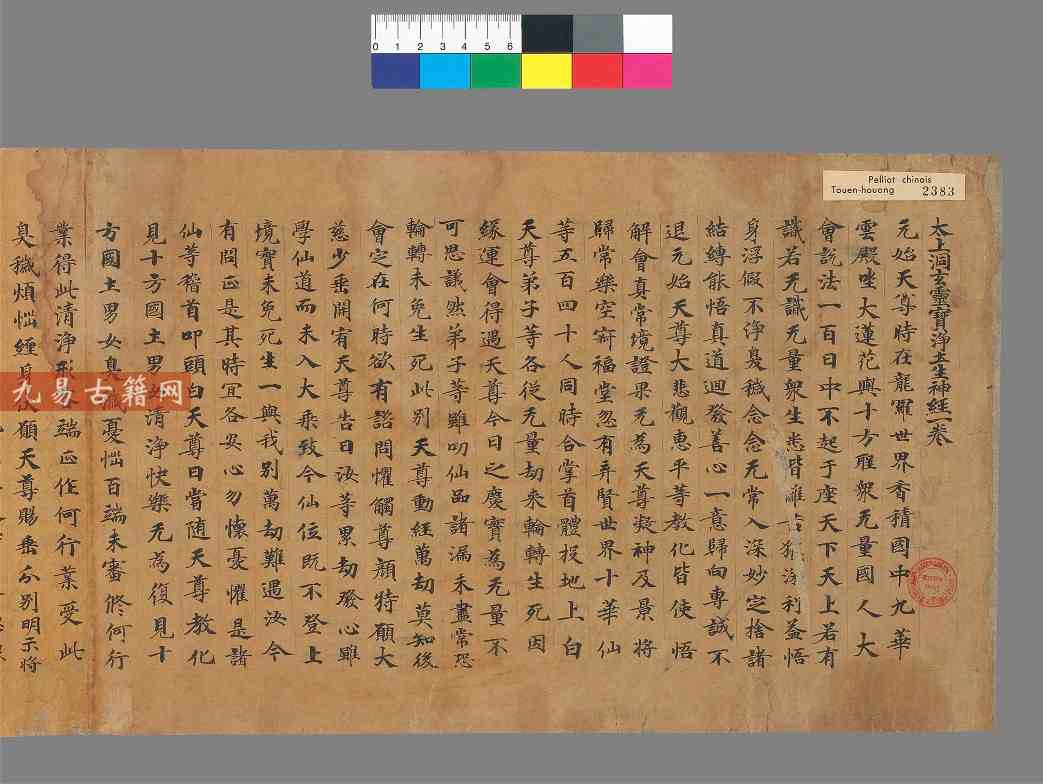 0 1 2 3 4 5 6
Pelliot chinois
Touen-houang 2383
太上洞玄靈寶淨土生神經一卷
元始天尊時在龍羅世界香積國中九華
雲殿坐大蓮花與十方聖衆无量國人大
會說法一百日中不起于座天下天上若有
識若无識无量衆生悉皆離苦獲淨利益悟
身浮假不淨臭穢念念无常入深妙定捨諸
結縛能悟真道迴發善心一意歸向專誠不
退元始天尊大悲觀惠平等教化皆使悟
解會真常境證果无為天尊凝神及景將
歸常樂空寂福堂忽有弃賢世界十華仙
等五百四十人同時合掌首體投地上白
天尊弟子等各從无量劫來輪轉生死因
緣運會得遇天尊今日之慶實為无量不
可思議然弟子等雖叨仙品諸漏未盡常恐
輪轉未免生死此別天尊動經萬劫莫知後
會定在何時欲有諮問懼觸尊顏特願大
慈少垂開宥天尊告曰汝等累劫發心雖
學仙道而未入大乘致令仙位既不登上
境實未免死生一與我別萬劫難遇汝今
有問正是其時宜各安心勿懷憂懼是諸
仙等稽首叩頭白天尊曰當随天尊教化
見十方國土男女清淨快樂无為復見十
方國土男女臭穢憂惱百端未審修何行
業得此清淨形容端正作何行業受此
臭穢煩惱纏身伏願天尊賜垂分別明示将
九易古籍网